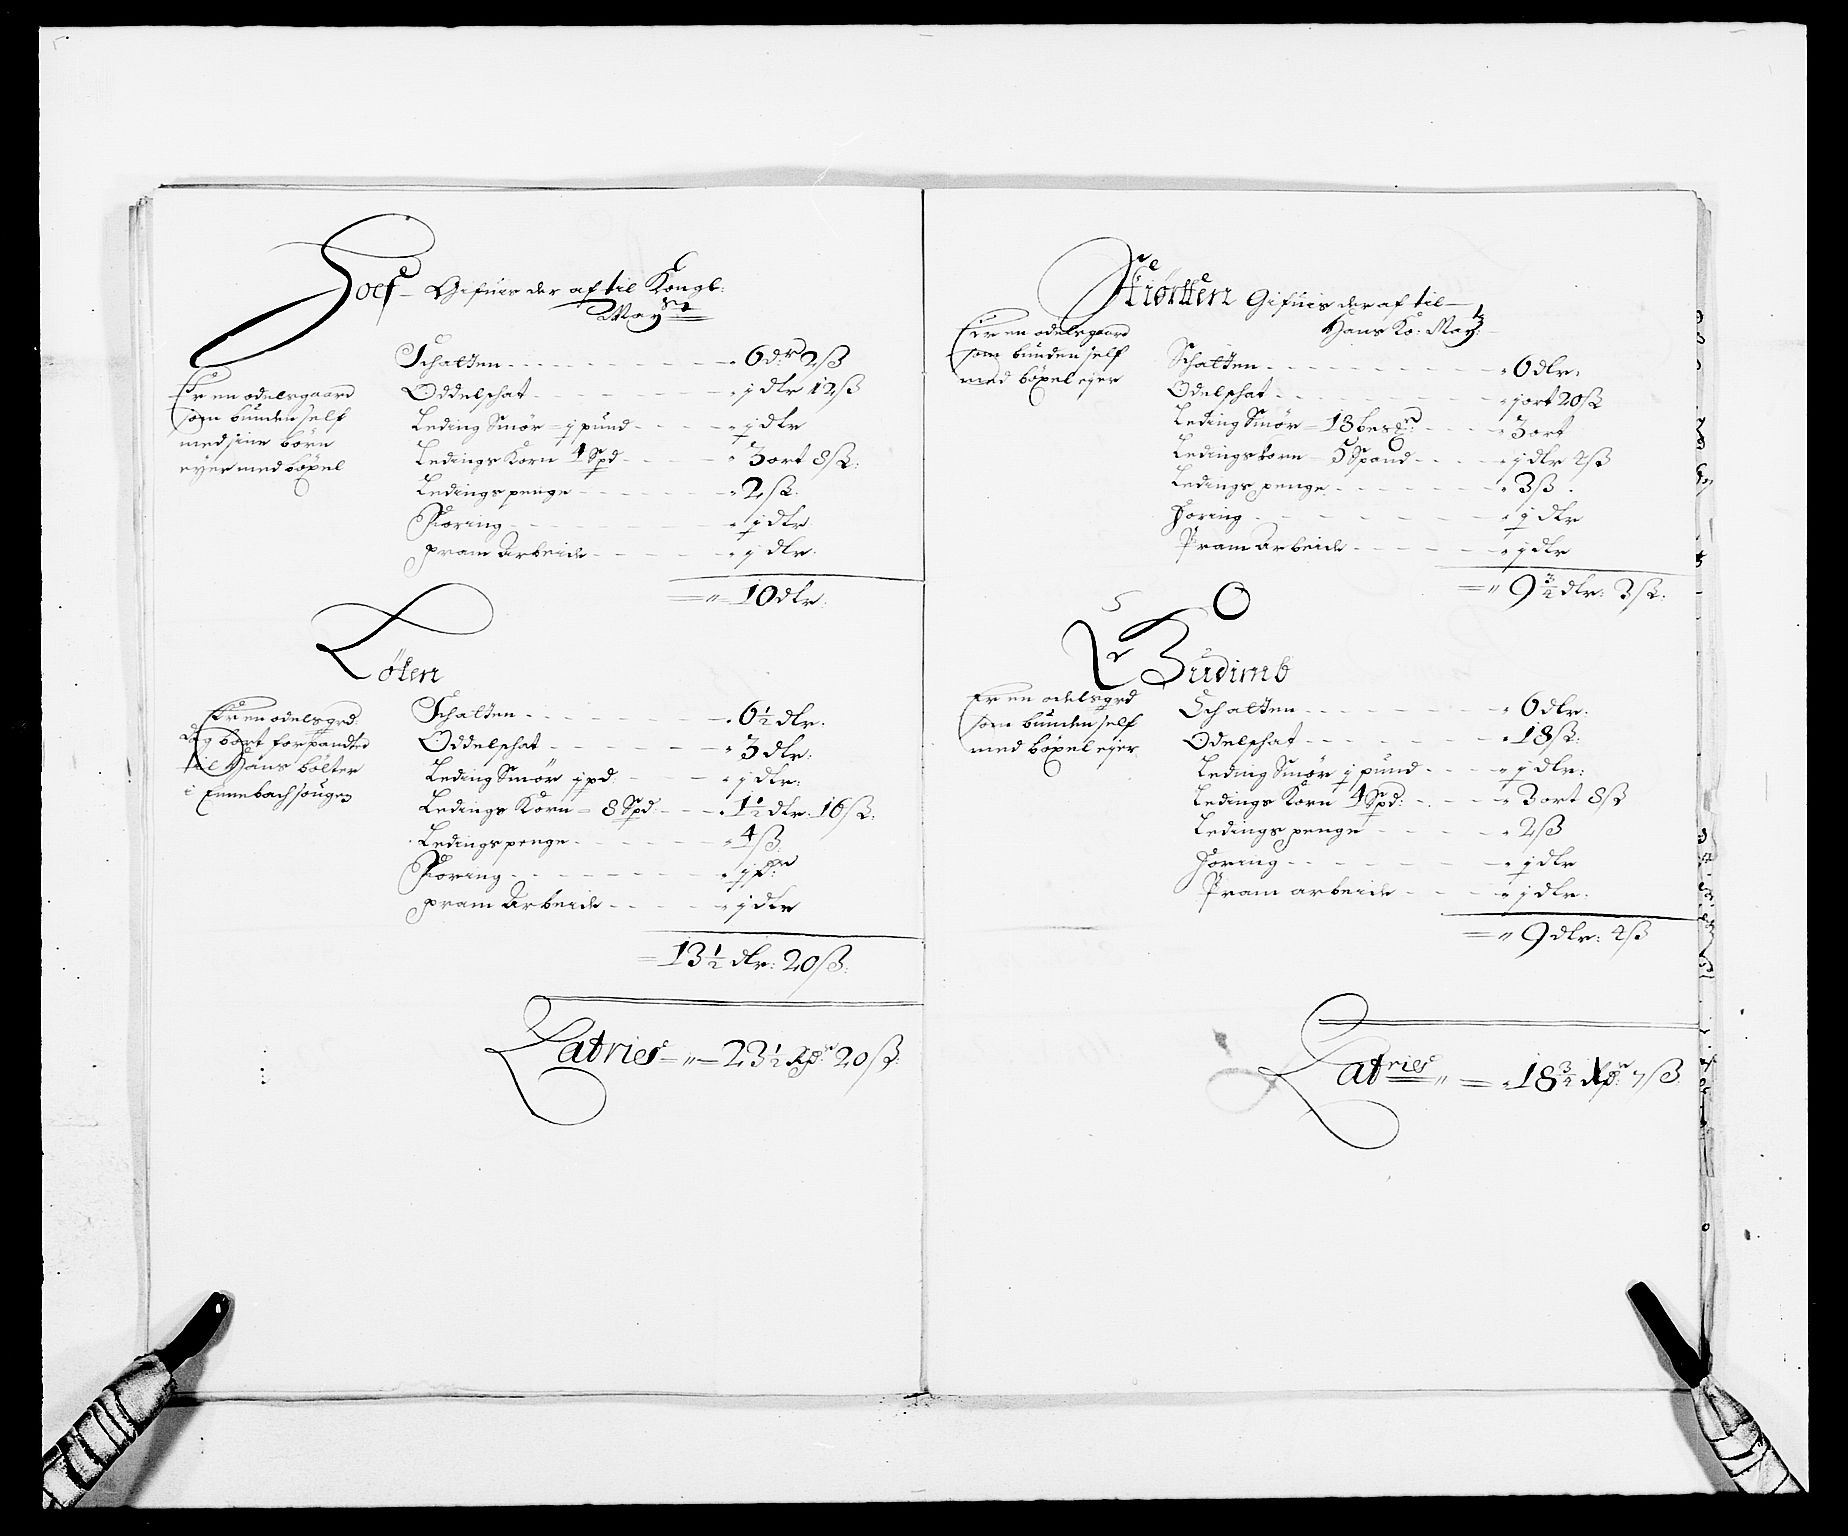 Hoef Gifuis der af til Kongl:
May:
Er en odelsgaard
som bunden self
med sine börn
eyer med böxel
Schatten - 6 dr 2 ß
Oddelschat - j dlr 12 ß
Leding Smör = j pund - j dlr
Ledings Korn 4 Spd - 3 ort 8 ß:
Ledings penge - 2 ß:
Foring - j dlr
pram Arbeide - j dlr:
10 dlr:
Löten
Er en odelsgrd:
dog bort forpandted
til Hans bölter
i Ennebach sougen
Schatten - 6½ dlr:
Oddelschat - 3 dlr:
Leding Smör j pd - j dlr:
Ledings Korn = 8 Spd: - 1½ dlr: 16 ß:
Ledings penge - 4 ß:
Foring - j
pram Arbeide - j dlr
= 13½ dlr: 20 ß:
Latries = 23½ Rdr 20 ß:
Hiortten Gifuis der af til
Hans Ko: May:
Er en odelsgaard
som bunden self
med böxel ejer
Schatten - 6 dlr:
Odelschat - j ort 20 ß
Leding Smör = 18 - 3 ort
Ledings korn = 5 Spand - j dlr 4 ß
Ledings penge - 3 ß
Foring - j dlr
Pram Arbeide - j dlr
= 9¾ dlr: 3 ß:
Budimb
Er en odelsgrd
som bunden self
med böxel ejer
Schatten - 6 dlr:
Odelschat - 18 ß:
Leding Smör j pund - j dlr:
Ledings Korn 4 Spd: - 3 ort 8 ß
Ledings penge - 2 ß
Foring - j dlr
Pram arbeide - j dlr:
= 9 dlr: 4 ß
Latries = 18¾ Rdr 7 ß: